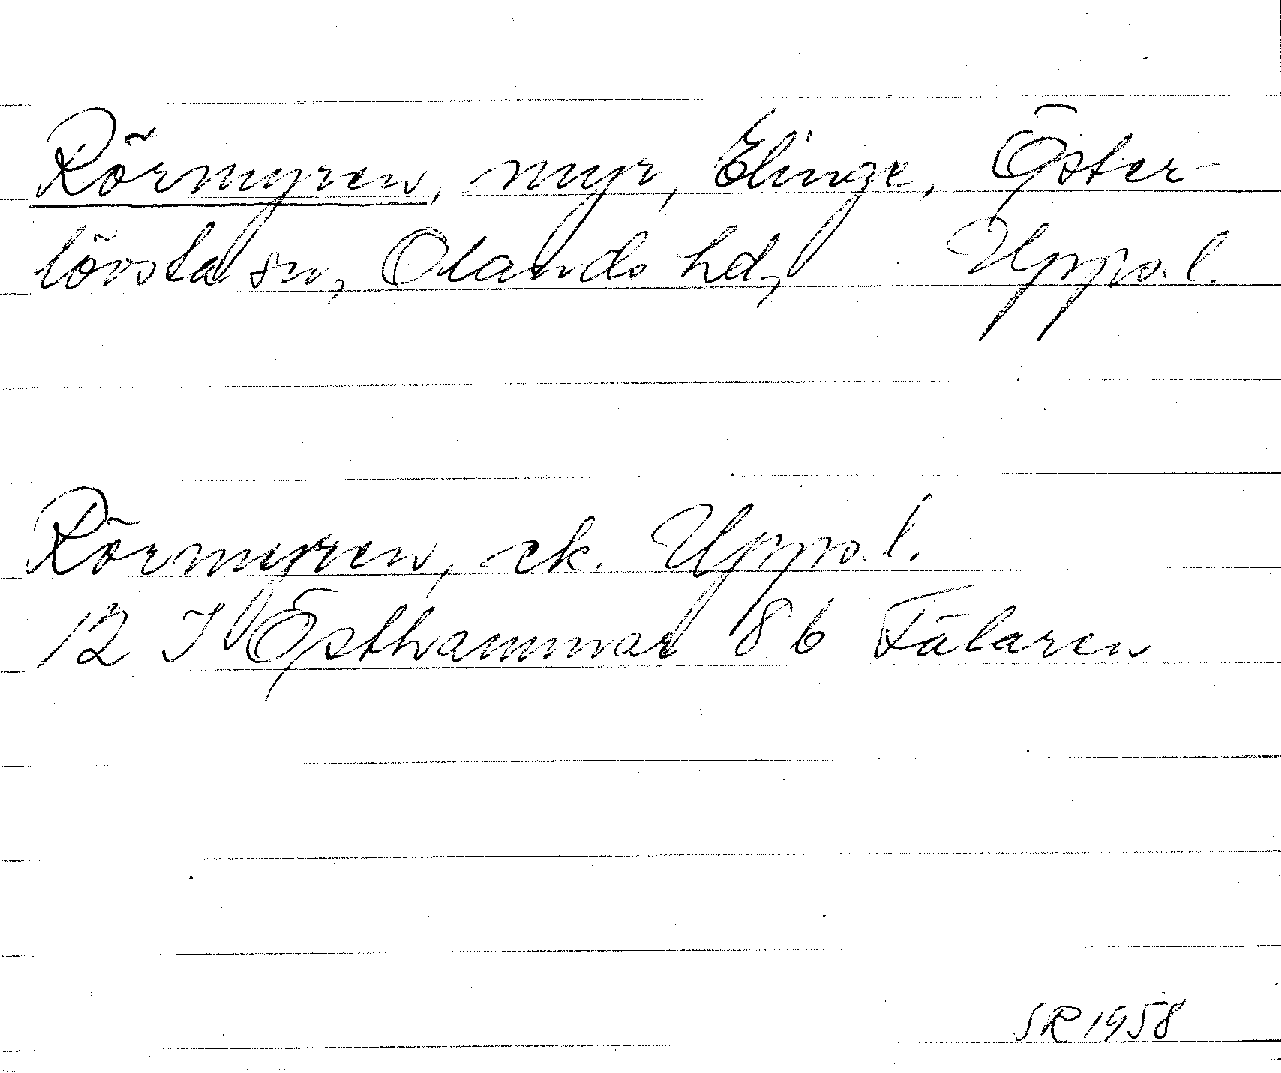 Rörmyren, myr, Elinge, Öster-
lövsta sn, Olands hd, Upps.l.
Rörmyren, ek. Upps.l.
12 I Östhammar 8b Fälaren
SR 1958